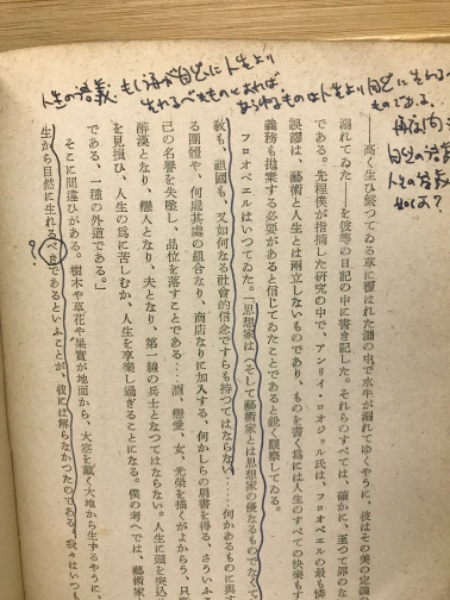 人生の意義、もし再が自然に人生より
生れるべきものとすれば
あらゆるものは人生より自然に生れるべ
ものである。
自然の意義
人生の意義
如何?
――高く生ひ繁つてゐる草に覆はれた湖の中で水牛が溺れてゆくやうに、彼はその美の定義
溺れてゐた――を彼等の日記の中に書き記した。それらのすべては、確かに、至つて罪のな
である。先程僕が指摘した研究の中で、アンリイ・ロオジヨル氏は、フロオベエルの最も憐
誤謬は、藝術と人生とは兩立しないものであり、ものを書く爲には人生のすべての快樂もす
義務も抛棄する必要があると信じてゐたことであると鋭く觀察してゐる。
フロオベエルはいつてゐた。「思想家は(そして藝術家とは思想家の優なるものでなくて
敎も、祖國も、又如何なる社會的信念ですらも持つてはならない……何かあるものに與す
る團體や、何處其處の組合なり、商店なりに加入する、何かしらの肩書を得る、さういふこ
己の名譽を失墜し、品位を落すことである…酒、戀愛、女、光榮を描くがよからう、只
醉漢となり、戀人となり、夫となり、第一線の兵士となつてはならない。人生に頭を突込
を見損ひ、人生の爲に苦しむか、人生を享樂し過ぎることになる。僕の考へでは、藝術家
である、一種の外道である。」
そこに間違ひがある。樹木や草花や果實が地面から、大空を戴く大地から生ずるやうに、
生から自然に生れるべきであるといふことが、彼には解らなかつたのである。我々はいつも
?